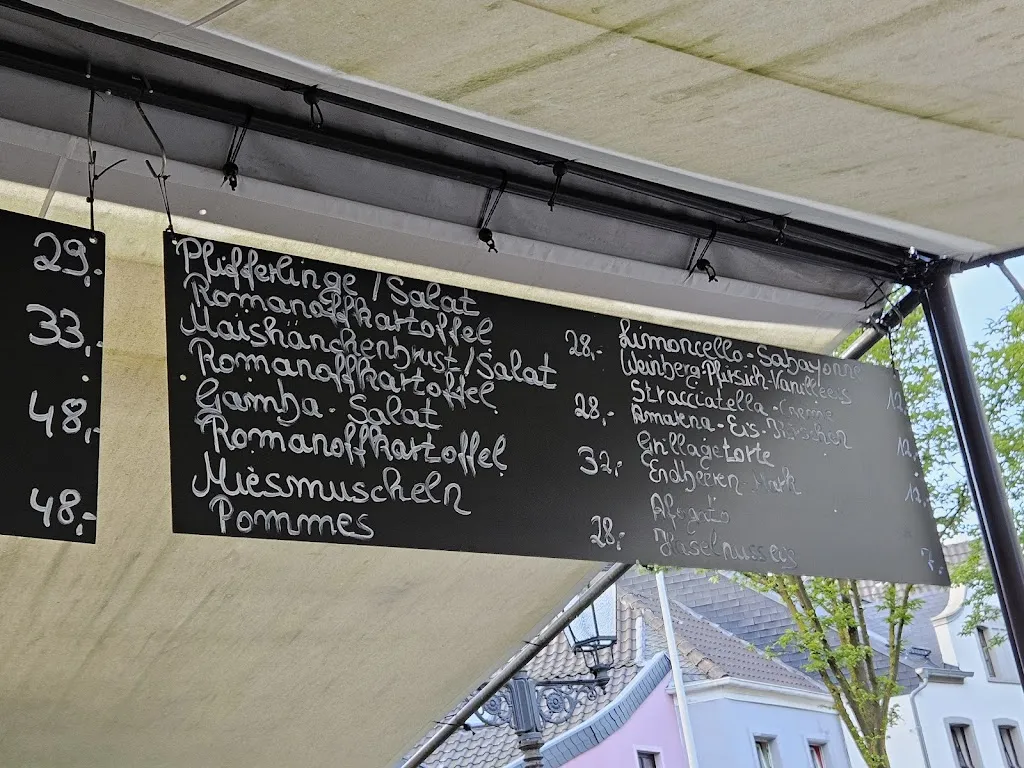 29,-
33,-
48,-
48,-
Pfifferlinge / Salat
Romanoffkartoffel 28,-
Maishänchenbrust / Salat
Romanoffkartoffel 28,-
Gamba - Salat
Romanoffkartoffel 32,-
Miesmuscheln
Pommes 28,-
Limoncello - Sabayonne
Weinberg-Pfirsich-Vanilleeis 12,
Stracciatella - Creme
Amarena - Eis - Kirschen 12,
Grillagetorte
Erdbeeren Mark 12,
Afogato
Haselnusseis 7,-